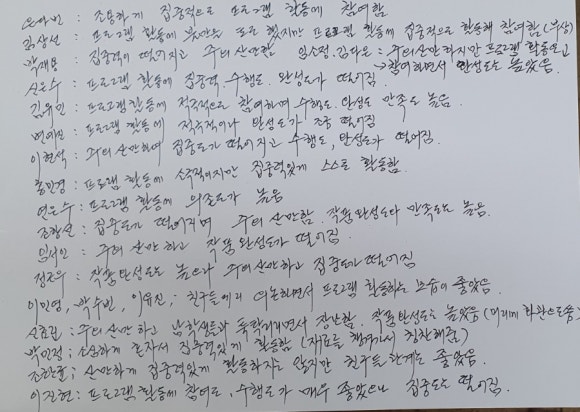 조용하게 집중적으로 프로그램 활동에 참여함
김상선 : 프로그램 활동에 했지만 프로그램 활동에 집중적으로 활동해 참여함 (부상)
집중력이 떨어지고 주의산만함 임소정, 김다은 : 주의산만하지만 프로그램 활동도 좋고
→ 참여하면서 완성도도 높았음.
신은수 : 프로그램 활동에 집중력, 수행도, 완성도가 떨어짐
김유민 : 프로그램활동에 적극적으로 참여하며 수행도, 완성도 만족도 높음
프로그램 활동에 적극적이나 완성도가 조금 떨어짐
이현석 : 주의산만하며 집중도가 떨어지고 수행도, 완성도가 떨어짐.
홍민경 : 프로그램 활동에 소극적이지만 집중력있게 스스로 활동함.
연은수 : 프로그램 활동에 의존도가 높음
조항선 : 집중도가 떨어지며 주의산만함. 작품완성도와 만족도는 높음.
임서인 : 주의 산만하고 작품 완성도가 떨어짐
정조우 : 작품 완성도는 높으나 주의산만하고 집중도가 떨어짐
이민영, 박수빈, 이유진, : 친구들에게 의논하면서 프로그램 활동하는 모습이 좋았음
주의산만하고 남학생들과 툭탁거리면서 장난함. 작품완성도는 높았음
박민정 : 소심하게 혼자서 집중력있게 활동함 (재료를 챙겨가서 칭찬해줌)
조한울 ; 산만하게 집중력있게 활동하지는 않지만 친구들관계는 좋았음.
이진현 : 프로그램 활동에 참여도, 수행도가 매우 좋았으나 집중도는 떨어짐.